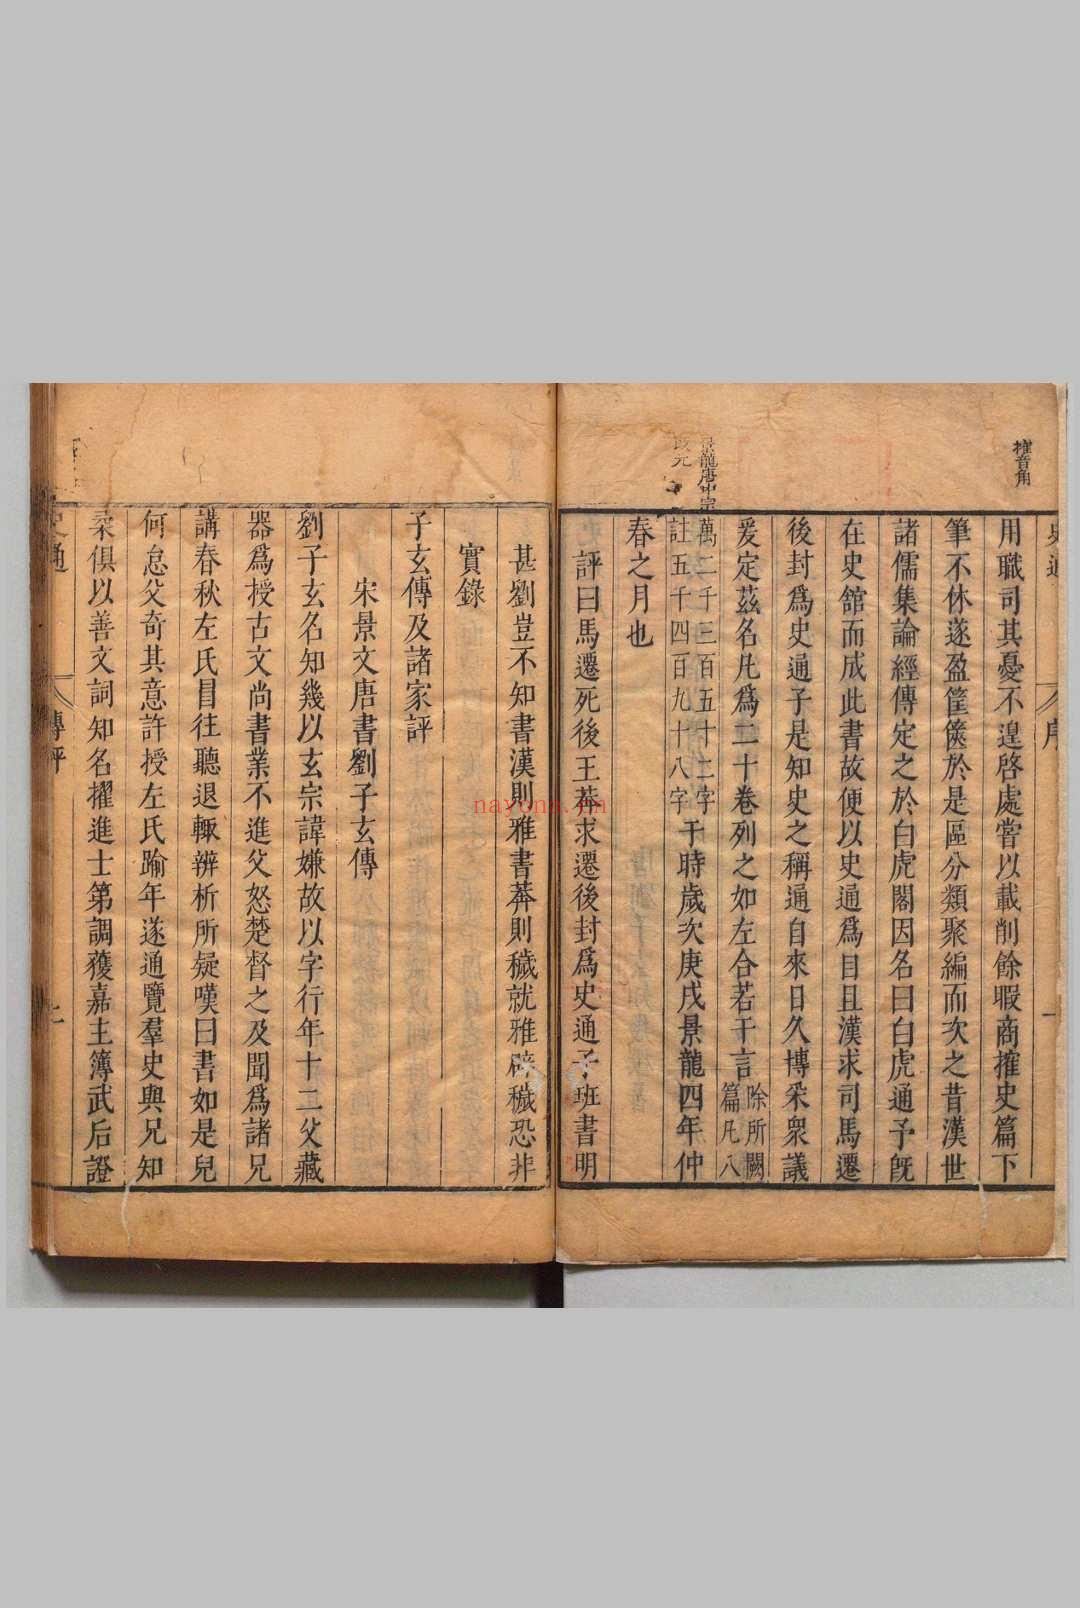 搉音角
用職司其憂不遑啓處嘗以載削餘暇商搉史篇下
筆不休遂盈筐篋於是區分類聚編而次之昔漢世
諸儒集論經傳定之於白虎閣因名曰白虎通予旣
在史館而成此書故便以史通爲目且漢求司馬遷
後封爲史通子是知史之稱通自來日久博采衆議
爰定茲名凡爲二十卷列之如左合若干言除所闕篇凡八
景龍唐中宗
改元
萬二千三百五十二字註五千四百九十八字于時歲次庚戌景龍四年仲
春之月也
評曰馬遷死後王莽求遷後封爲史通子班書明
甚劉豈不知書漢則雅書莽則穢就雅辟穢恐非
實錄
子玄傳及諸家評
宋景文唐書劉子玄傳
劉子玄名知幾以玄宗諱嫌故以字行年十二父藏
器爲授古文尚書業不進父怒楚督之及聞爲諸兄
講春秋左氏目往聽退輒辨析所疑嘆曰書如是兒
何怠父奇其意許授左氏踰年遂通覽羣史與兄知
柔俱以善文詞知名擢進士第調獲嘉主簿武后證
史通
序
一
史通
傳評
上
nayona.cn